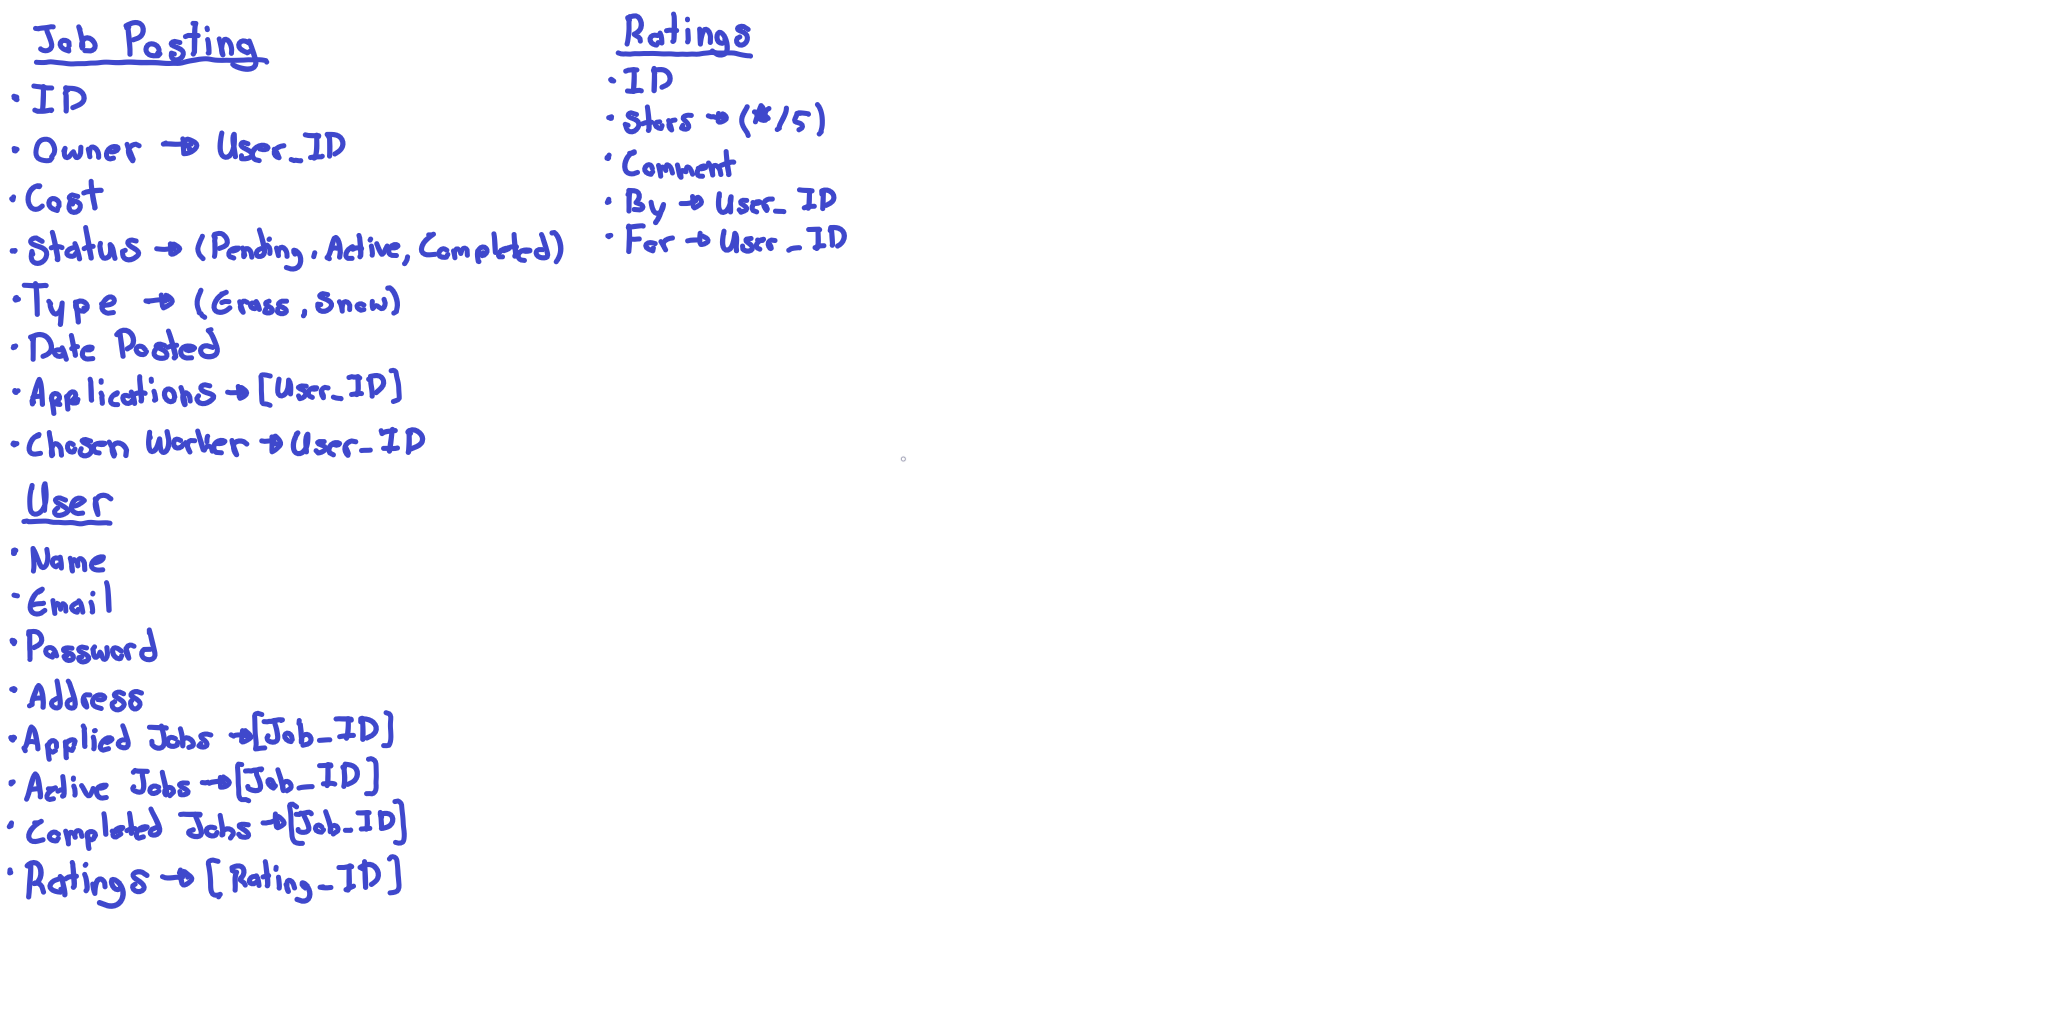 Job Posting
• ID
• Owner → User_ID
• Cost
• Status → (Pending, Active, Completed)
• Type → (Grass, Snow)
• Date Posted
• Applications → [User_ID]
• Chosen Worker → User_ID
User
• Name
• Email
• Password
• Address
• Applied Jobs → [Job_ID]
• Active Jobs → [Job_ID]
• Completed Jobs → [Job_ID]
• Ratings → [Rating_ID]
Ratings
• ID
• Stars → (*/5)
• Comment
• By → User_ID
• For → User_ID